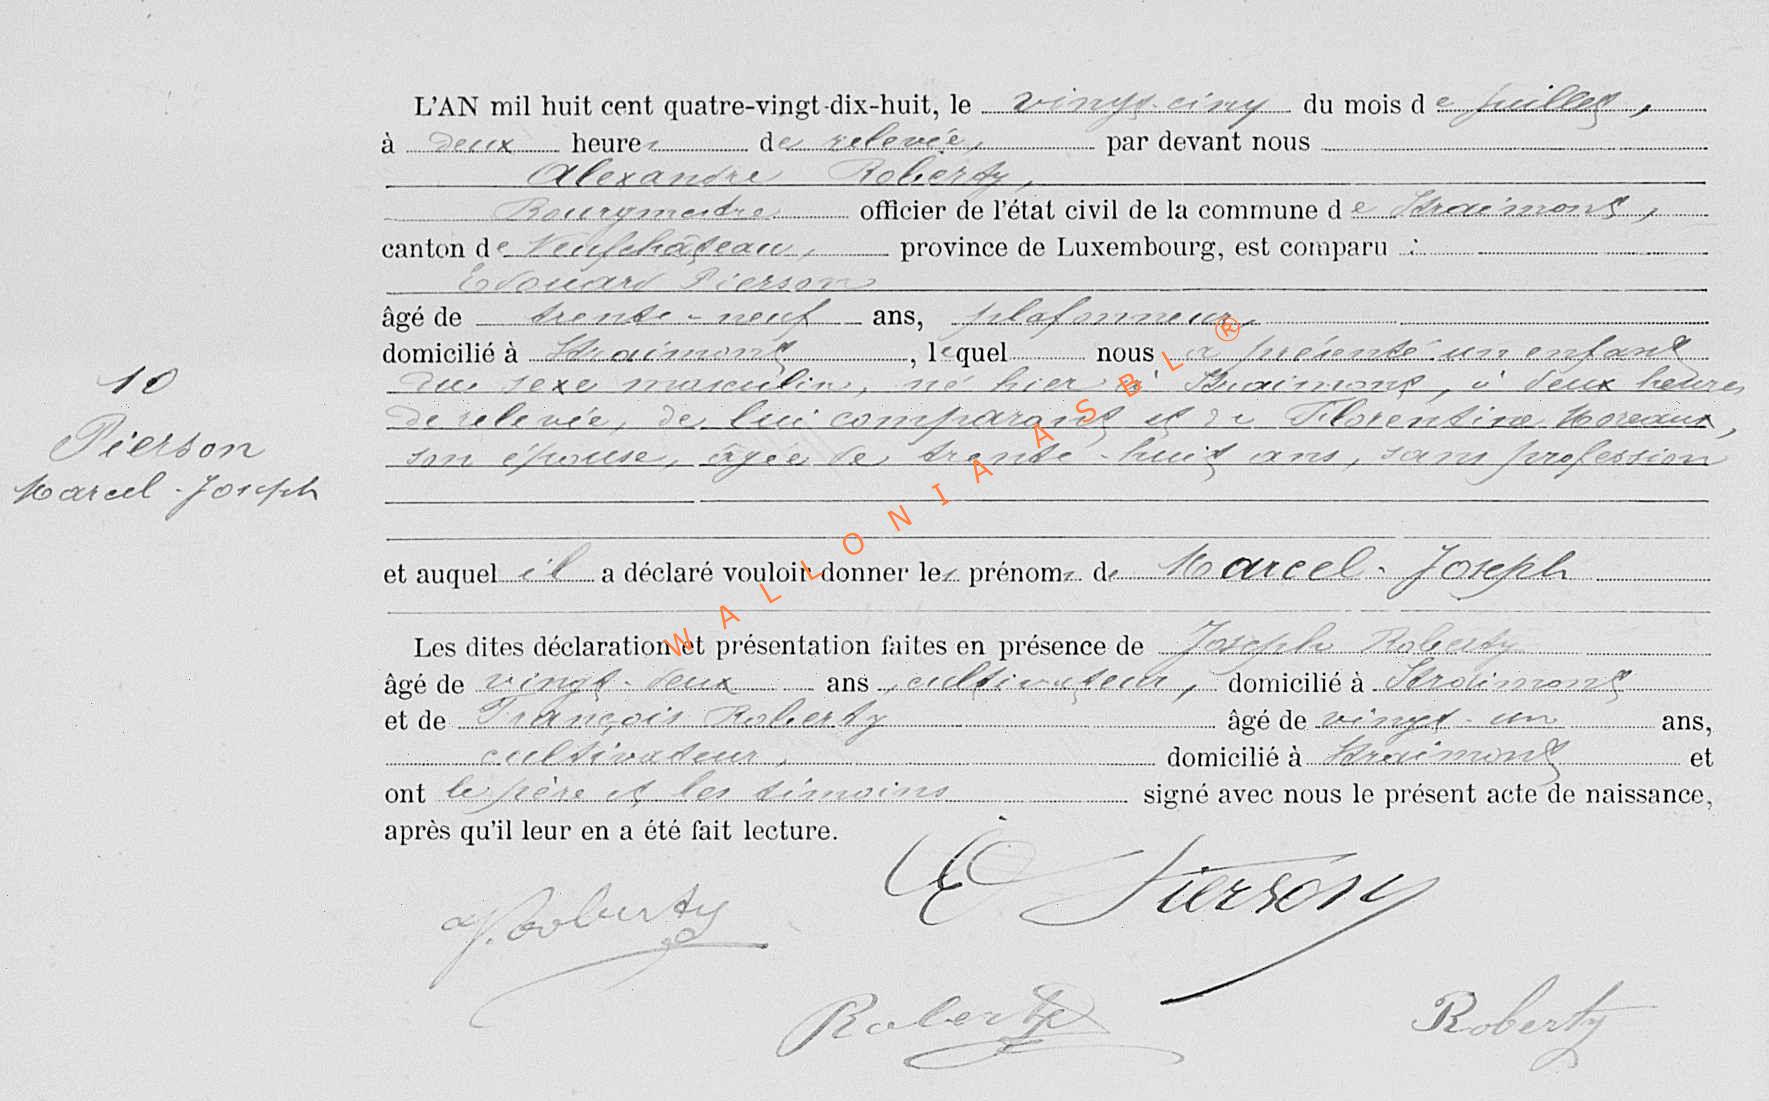 L'AN mil huit cent quatre-vingt-dix-huit, le vingt-cinq du mois de Juillet,
à deux heures de relevée, par devant nous
Alexandre Roberty,
Bourgmestre officier de l'état civil de la commune de Straimont,
canton de Neufchâteau, province de Luxembourg, est comparu :
Edouard Pierson
âgé de trente-neuf ans, plafonneur,
domicilié à Straimont, lequel nous a présenté un enfant
du sexe masculin, né hier à Straimont, à deux heures
de relevée, de lui comparant et de Florentine Moreaux,
son épouse, âgée de trente-huit ans, sans profession
10
Pierson
Marcel-Joseph
et auquel il a déclaré vouloir donner les prénoms de Marcel-Joseph
Les dites déclaration et présentation faites en présence de Joseph Roberty
âgé de vingt-deux ans, cultivateur, domicilié à Straimont
et de François Roberty âgé de vingt-un ans,
cultivateur, domicilié à Straimont et
ont le père et les témoins signé avec nous le présent acte de naissance,
après qu'il leur en a été fait lecture.
E Pierson
J. Roberty
Roberty
Roberty
WALLONIA ASBL ®